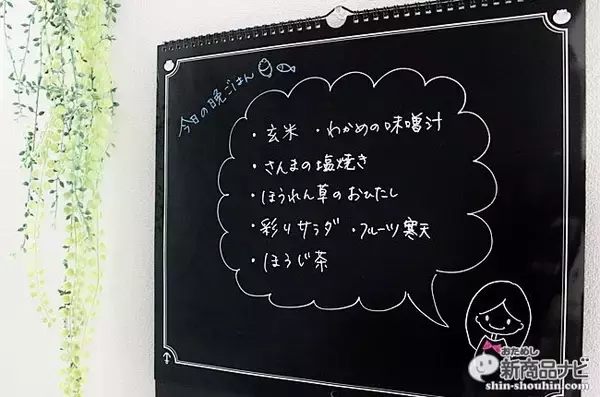 今日の晩ごはん
・玄米 ・わかめの味噌汁
・さんまの塩焼き
・ほうれん草のおひたし
・彩りサラダ ・フルーツ寒天
・ほうじ茶
おためし
新商品ナビ
shin-shouhin.com